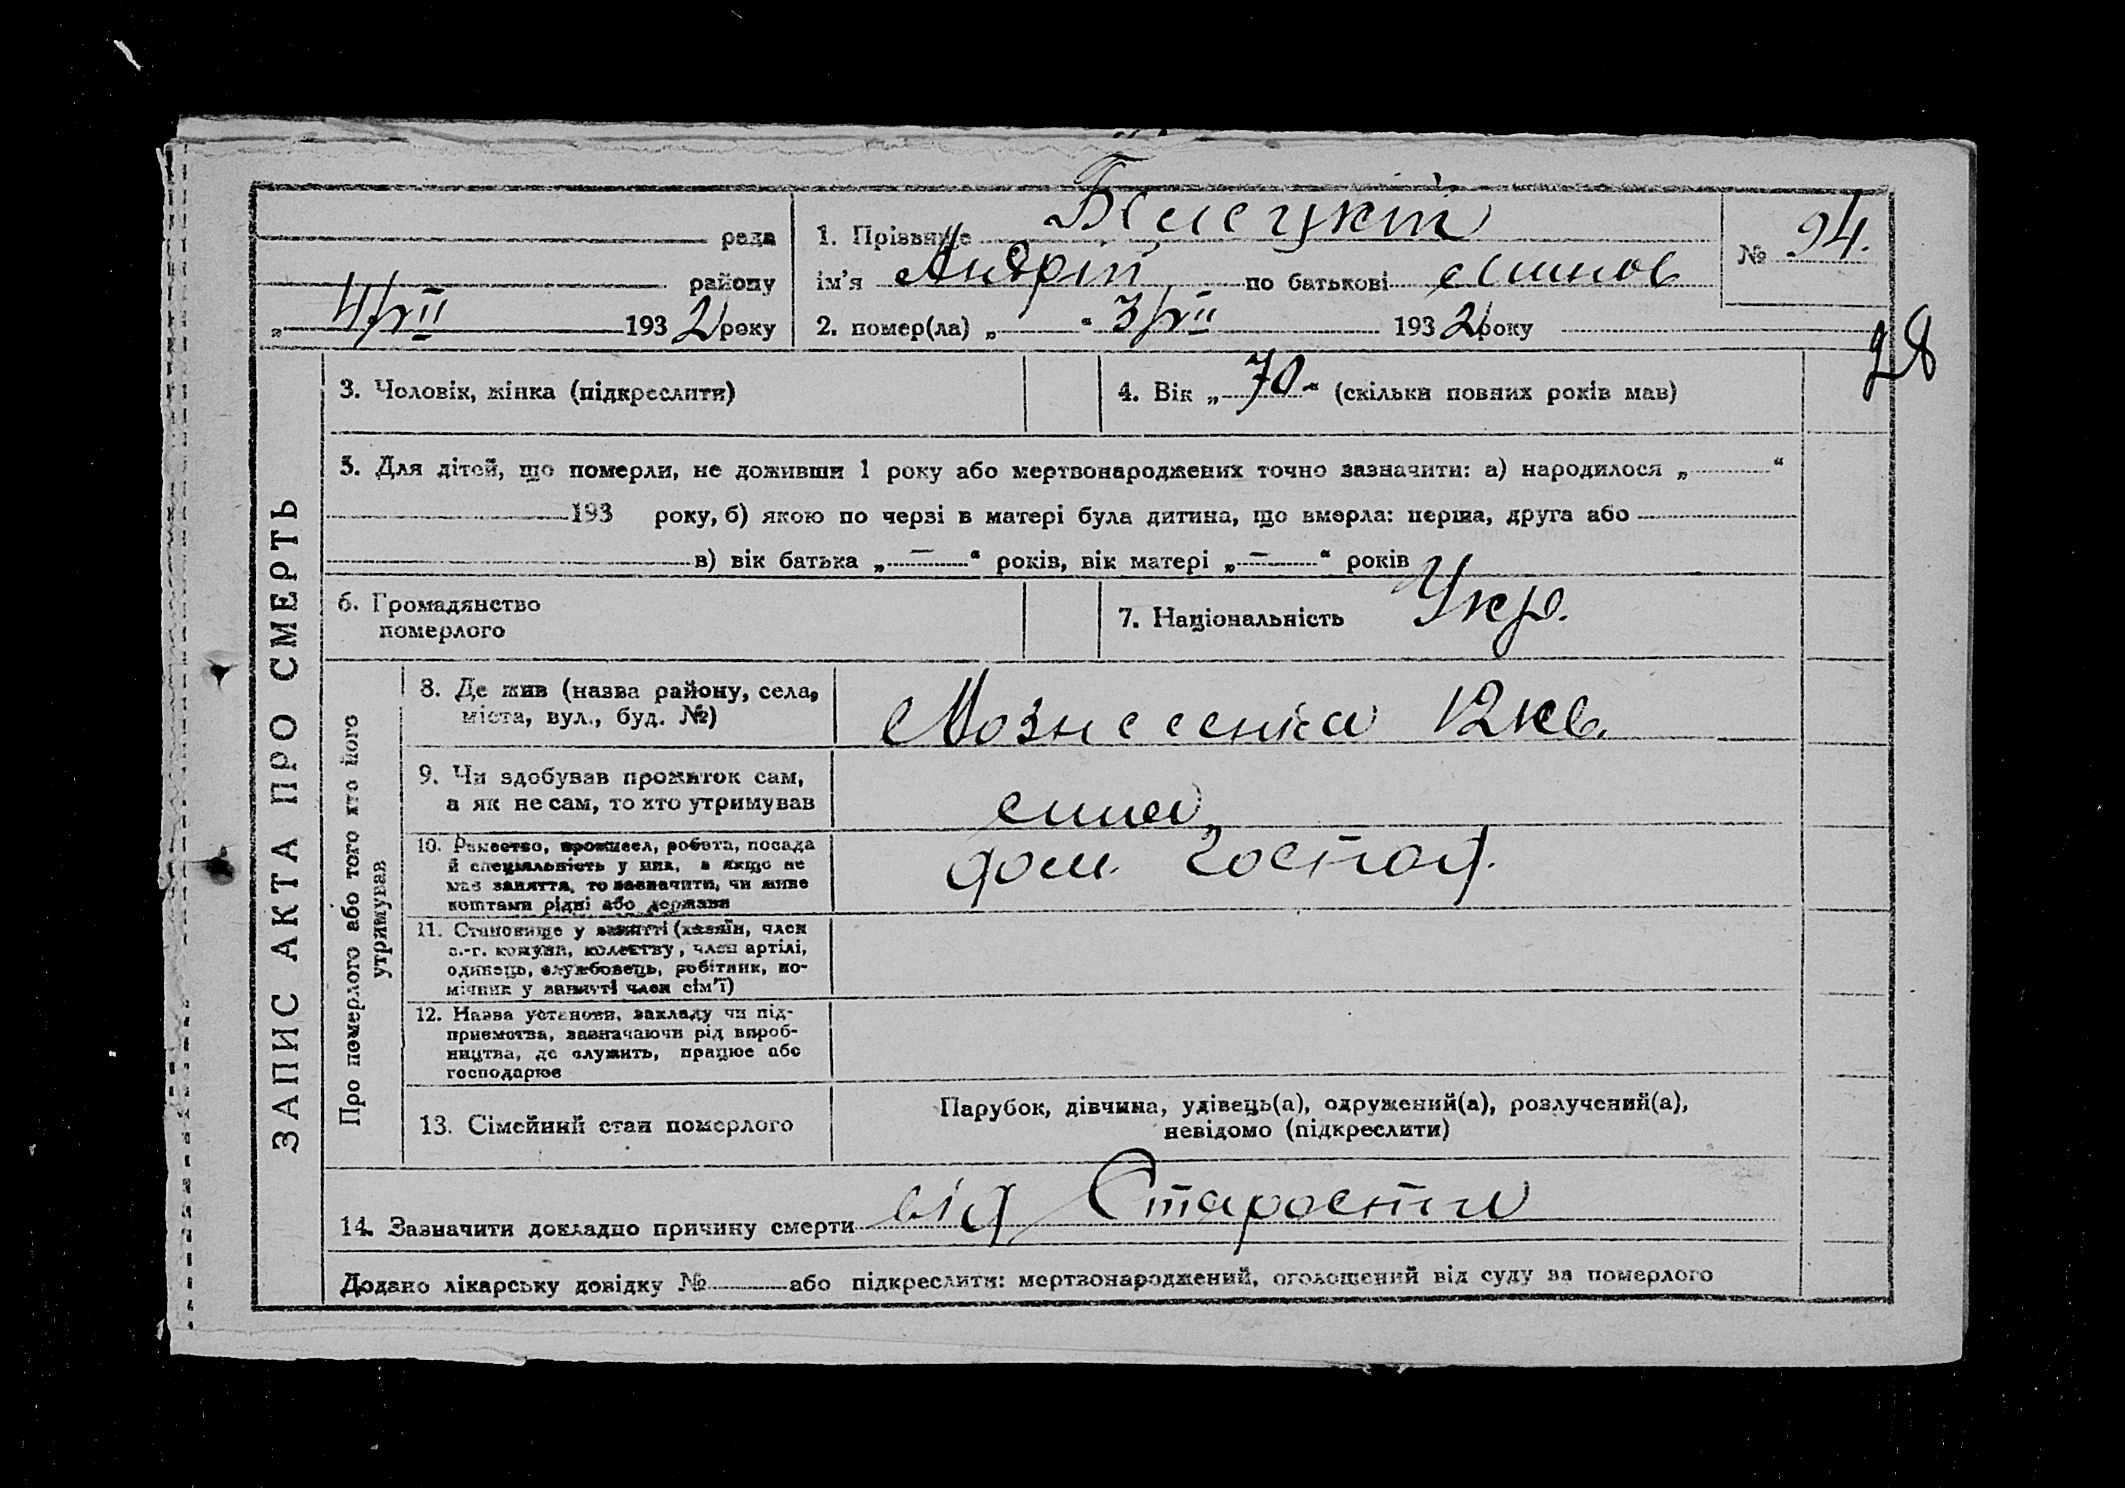 Білецкій
рада | 1. Прізвище
№ 94.
району | ім'я Андрій по батькові
„ 4/VII 1932 року | 2. помер(ла) „ “ 3/VII 1932 року
98
ЗАПИС АКТА ПРО СМЕРТЬ
3. Чоловік, жінка (підкреслити)
4. Вік „70“ (скільки повних років мав)
5. Для дітей, що померли, не доживши 1 року або мертвонароджених точно зазначити: а) народилося „ “
193 року, б) якою по черзі в матері була дитина, що вмерла: перша, друга або
в) вік батька „—“ років, вік матері „—“ років
6. Громадянство
померлого
7. Національність Укр.
Про померлого або того хто його
утримував
8. Де жив (назва району, села,
міста, вул., буд. №)
Вознесенка 12 кв.
9. Чи здобував прожиток сам,
а як не сам, то хто утримував
10. Ремество, промисел, робота, посада
й спеціяльність у них, а якщо не
мав заняття, то зазначити, чи живе
коштами рідні або держави
дом. господ.
11. Становище у занятті (хазяїн, член
с.-г. комуни, колективу, член артілі,
одинець, службовець, робітник, по-
мічник у занятті член сім'ї)
12. Назва установи, закладу чи під-
приємства, зазначаючи рід вироб-
ництва, де служить, працює або
господарює
13. Сімейний стан померлого
Парубок, дівчина, удівець(а), одружений(а), розлучений(а),
невідомо (підкреслити)
14. Зазначити докладно причину смерти від Старости
Додано лікарську довідку № або підкреслити: мертвонароджений, оголошений від суду за померлого